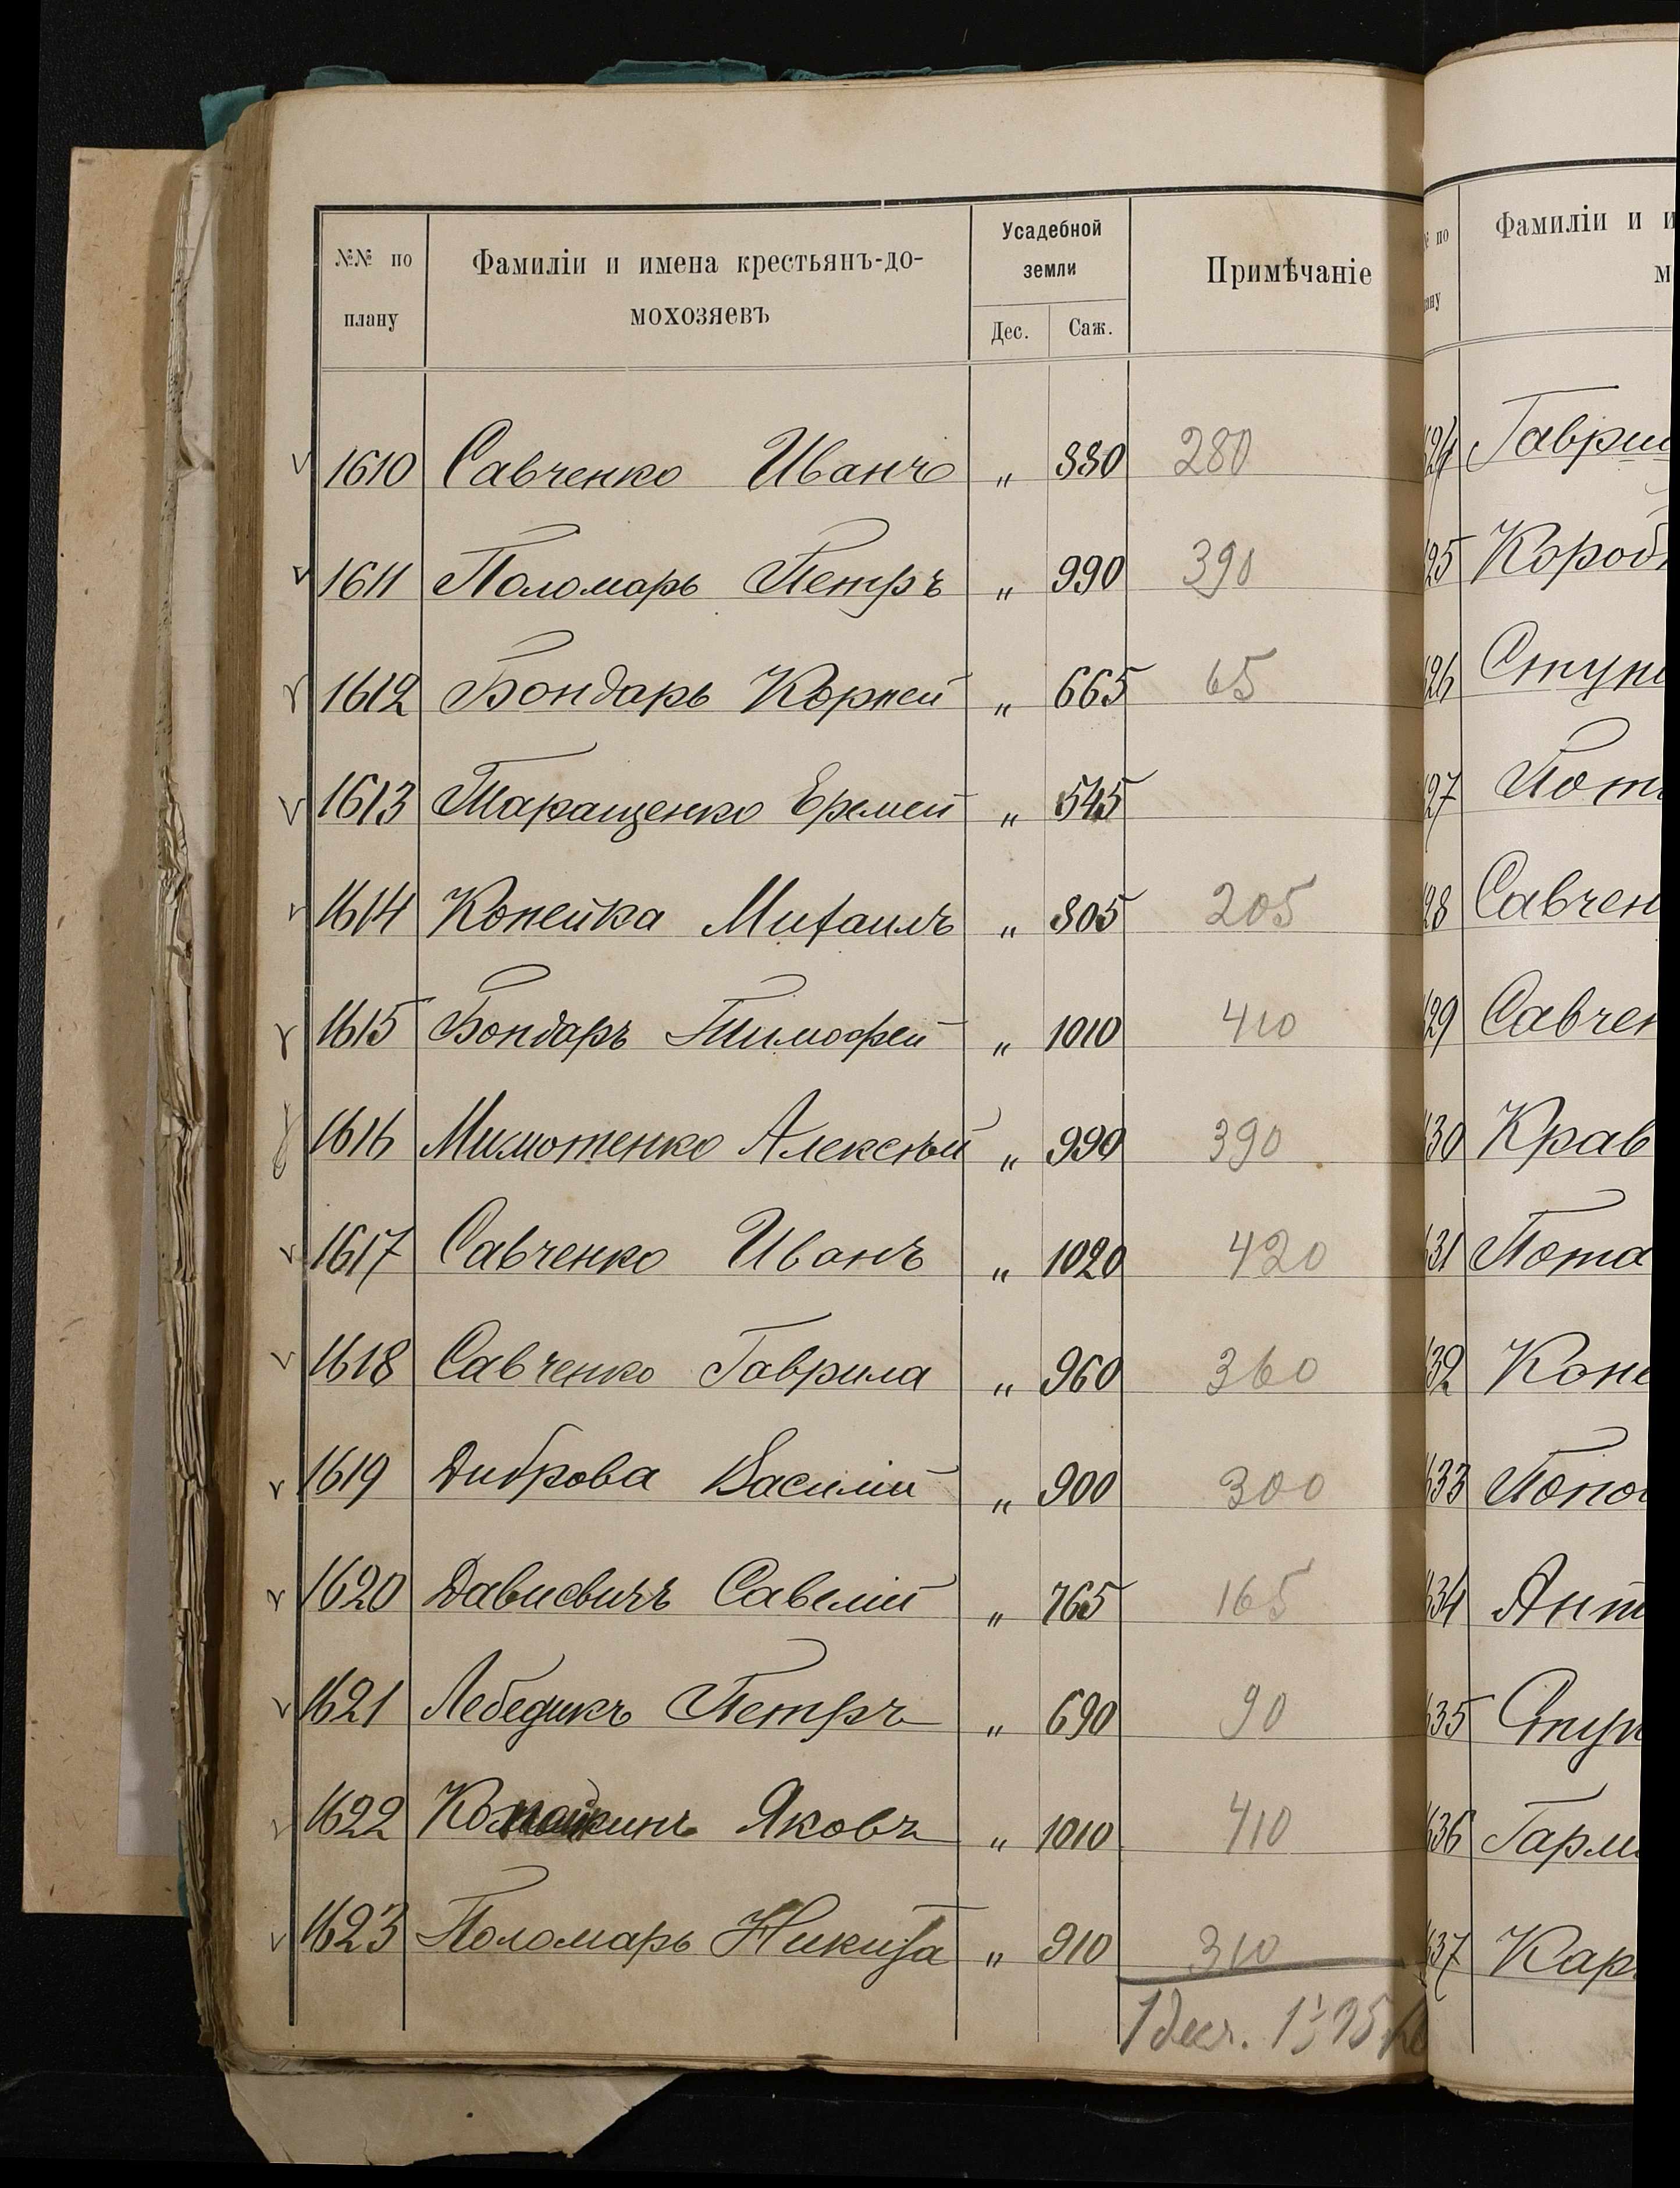 №№ по плану
Фамиліи и имена крестьянъ-домохозяевъ
Усадебной земли
Дес. Саж.
Примѣчаніе
1610 Савченко Иванъ „ 880 280
1611 Поломарь Петръ „ 990 390
1612 Бондарь Корней „ 665 65
1613 Таращенко Еремей „ 545
1614 Копейка Михаилъ „ 805 205
1615 Бондарь Тимофей „ 1010 410
1616 Мимотенко Алексѣй „ 990 390
1617 Савченко Иванъ „ 1020 420
1618 Савченко Гаврила „ 960 360
1619 Диброва Василій „ 900 300
1620 Савелій „ 765 165
1621 Лебедикъ Петръ „ 690 90
1622 Яковъ „ 1010 410
1623 Поломарь Никита „ 910 310
1 дес.
Фамиліи и и
м
Гаври
Короб
Ступ
Пот
Савчен
Савчен
Крав
Пота
Коне
Попо
Ант
Ступ
Гарм
Кар